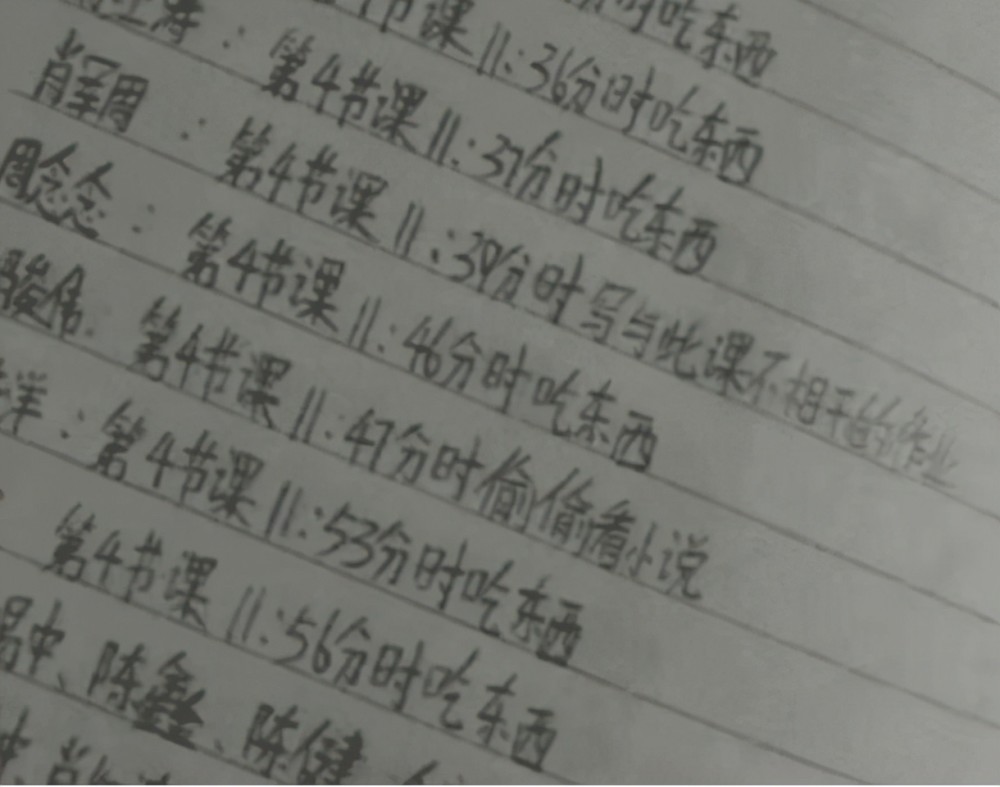 分时吃东西
节课 11:36分时吃东西
涛：第4节课 11:37分时吃东西
肖 周：第4节课 11:39分时写与此课不相干的作业
周念念：第4节课 11:46分时吃东西
骏伟：第4节课 11:47分时偷偷看小说
洋：第4节课 11:53分时吃东西
第4节课 11:56分时吃东西
中、陈鑫、陈健
肖